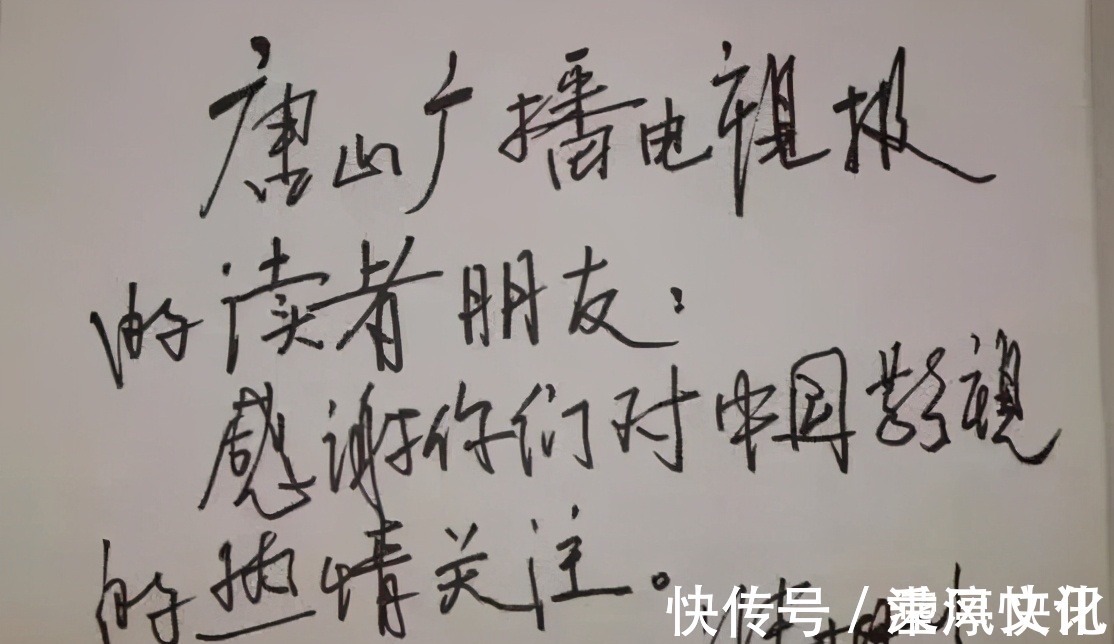 唐山广播电视报
的读者朋友：
感谢你们对中国影视
的热情关注。
快传号／